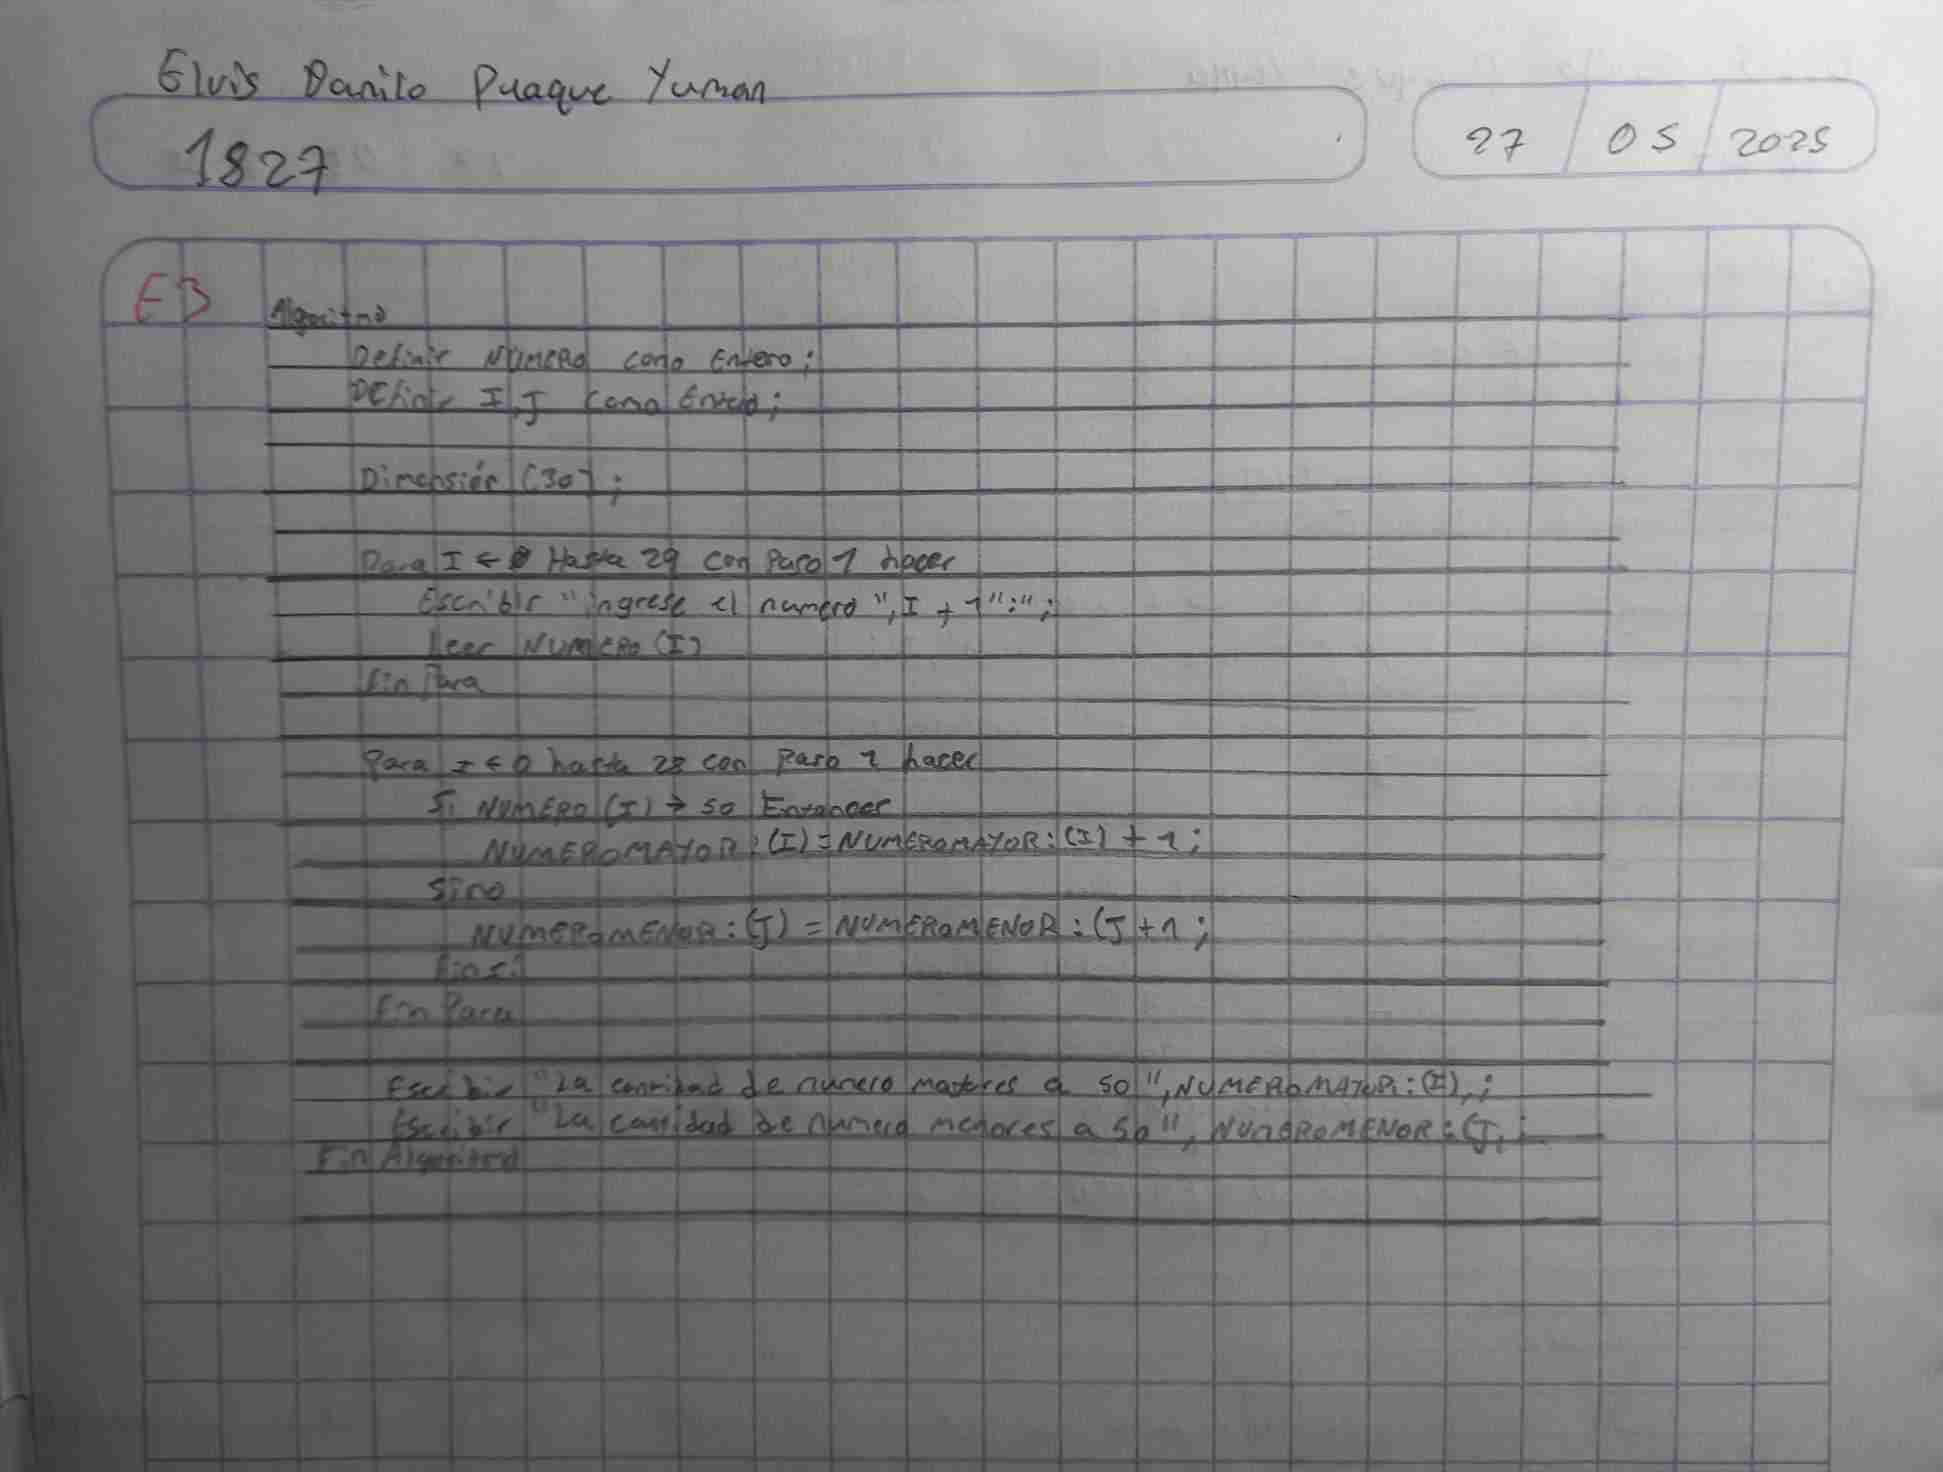 Elvis Danilo Puaque Yuman
1827
27 / 05 / 2025
E3
Algoritmo
Definir NUMERO como Entero;
DEfinir I,J como Entero;
Dimensión (30);
Para I ← 0 Hasta 29 con Paso 1 hacer
Escribir "ingrese el numero", I + 1":";
leer NUMERO (I)
Fin Para
Para I ← 0 hasta 28 con Paso 1 hacer
Si NUMERO (I) → 50 Entonces
NUMEROMAYOR:(I)=NUMEROMAYOR:(I) + 1;
Sino
NUMEROMENOR:(J) = NUMEROMENOR:(J + 1;
Fin si
Fin Para
Escribir "La cantidad de numero mayores a 50", NUMEROMAYOR:(I),;
Escribir "La cantidad de numero menores a 50", NUMEROMENOR:(J,;
Fin Algoritmo